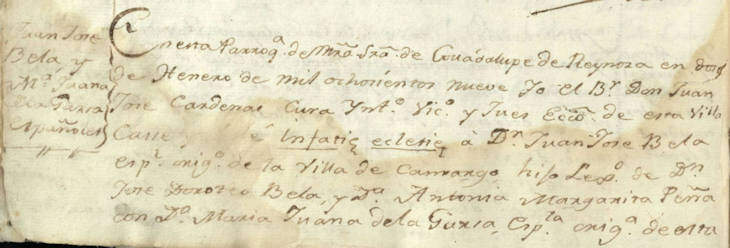 Juan José
Bela y
Mª. Juana
de la Garsa
españoles
En esta Parroqª. de Nrâ. Srâ. de Guadalupe de Reynosa en dos
de Henero de mil ochosientos nueve Yo el Br. Don Juan
José Cardenas Cura Yntº. Vicº. y Jues Eccô. de esta Villa
Casse y infatiȩ ecletiȩ à Dn. Juan José Bela
espl. origº. de la Villa de Camargo hijo Lexº. de Dn.
José Doroteo Bela, y Dª. Antonia Margarita Peña
con Dª. Maria Juana de la Garsa, Esplª. origª. de esta